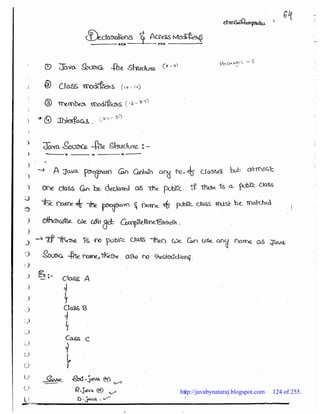 64
① Declarations & Access Modifiers
① Java Source file structure
② Class modifiers
③ members modifiers
* ④ Interfaces.
Java Source file structure :-
→ A Java program can contain any no. of classes but atmost
one class can be declared as the public. if there is a public class
the name of the program & name of public class must be matched
otherwise we will get CompiletimeError.
→ If there is no public class then we can use any name as Java
Source file name, there are no restrictions.
Ex:-
class A
{
}
class B
{
}
class C
{
}
Save
R.java
D.java
http://javabynataraj.blogspot.com 124 of 255.